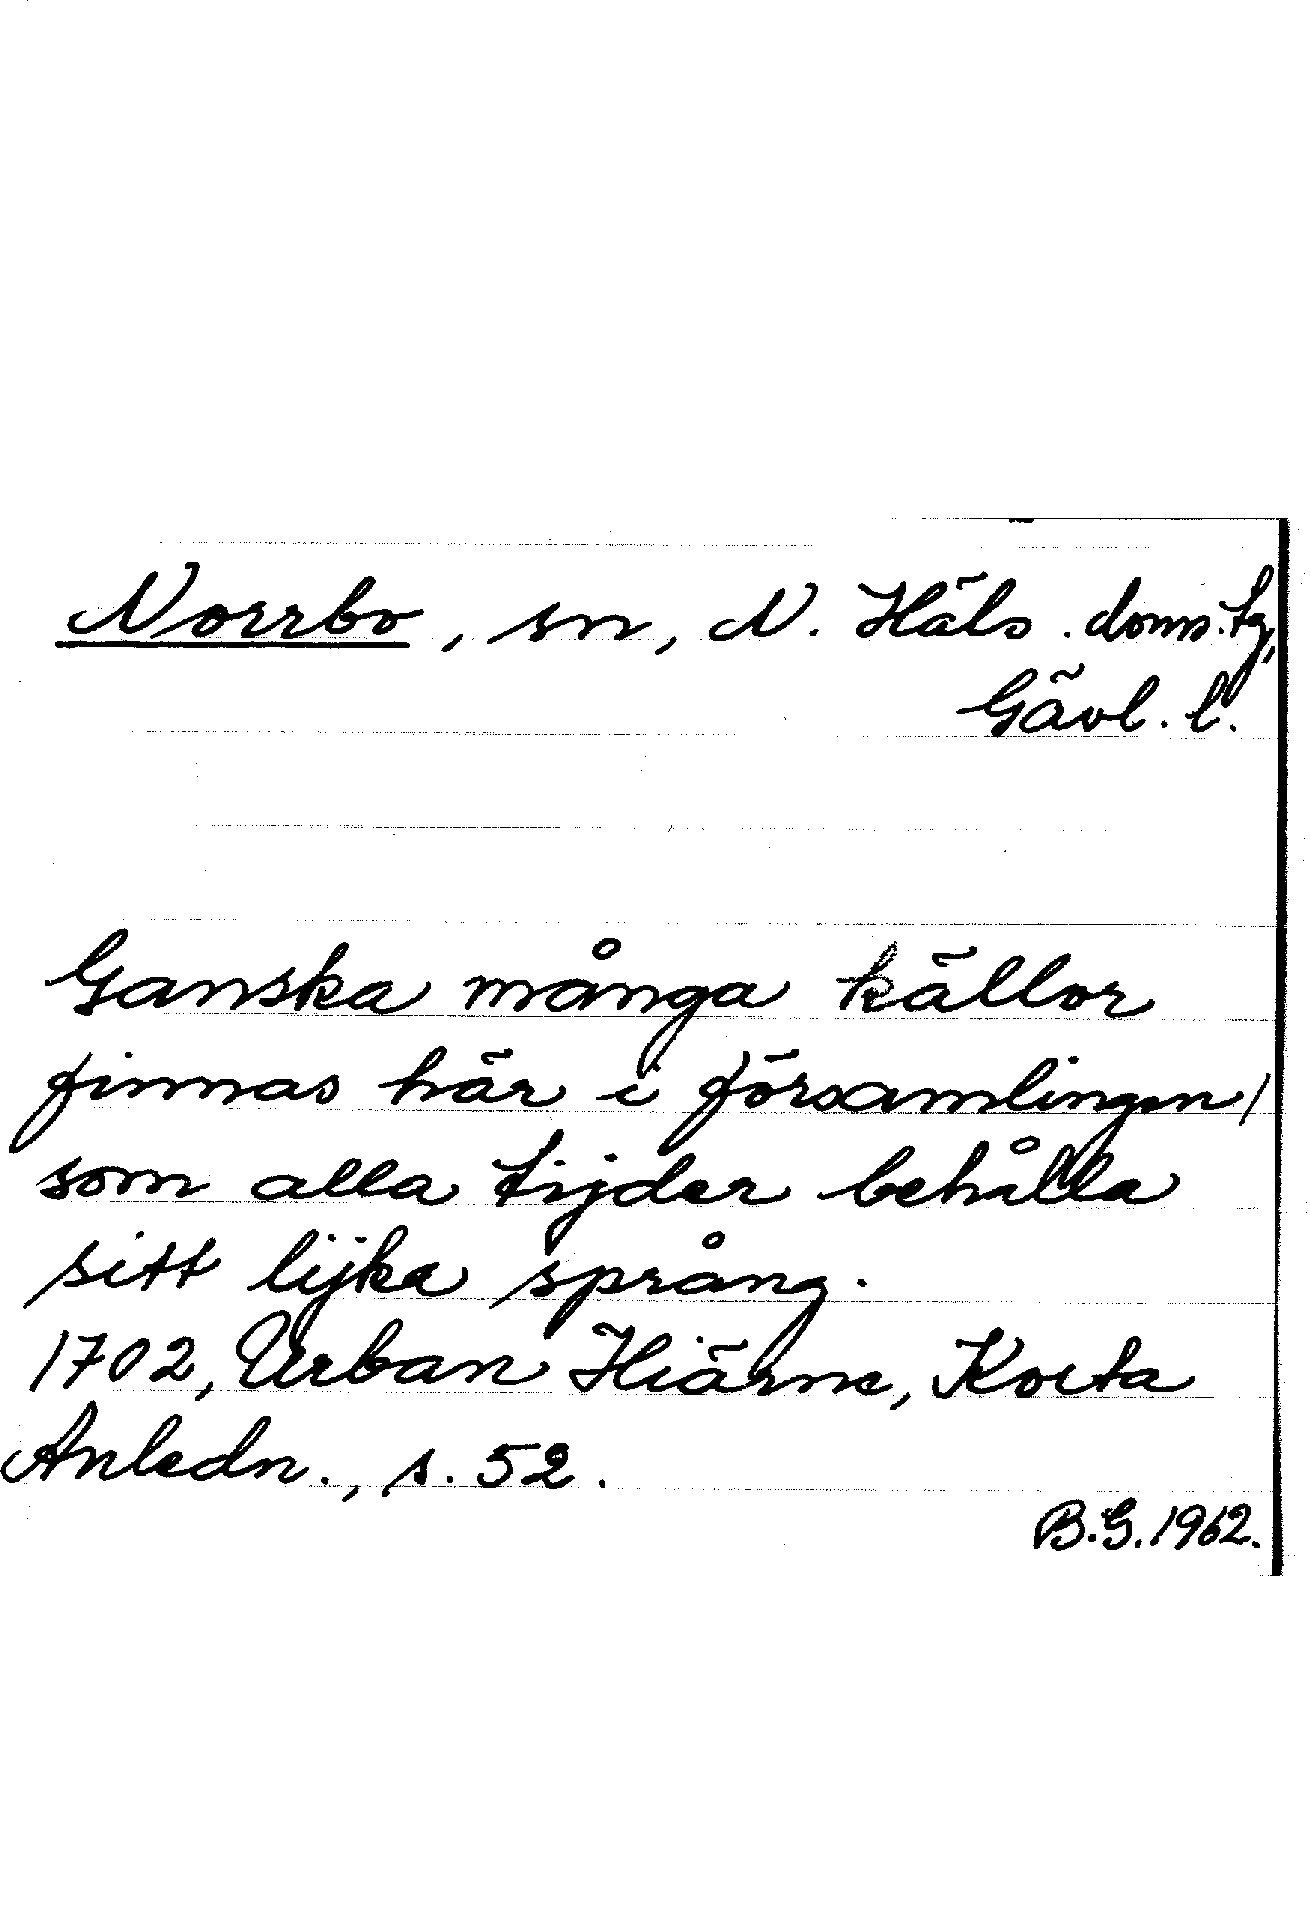 Norrbo, sn, N. Häls. doms.tg,
Gävl. l.
Ganska många källor
finnas här i församlingen/
som alla tijder behålla
sitt lijka språng.
1702, Urban Hiärne, Korta
Anledn., s. 52.
B.G. 1962.